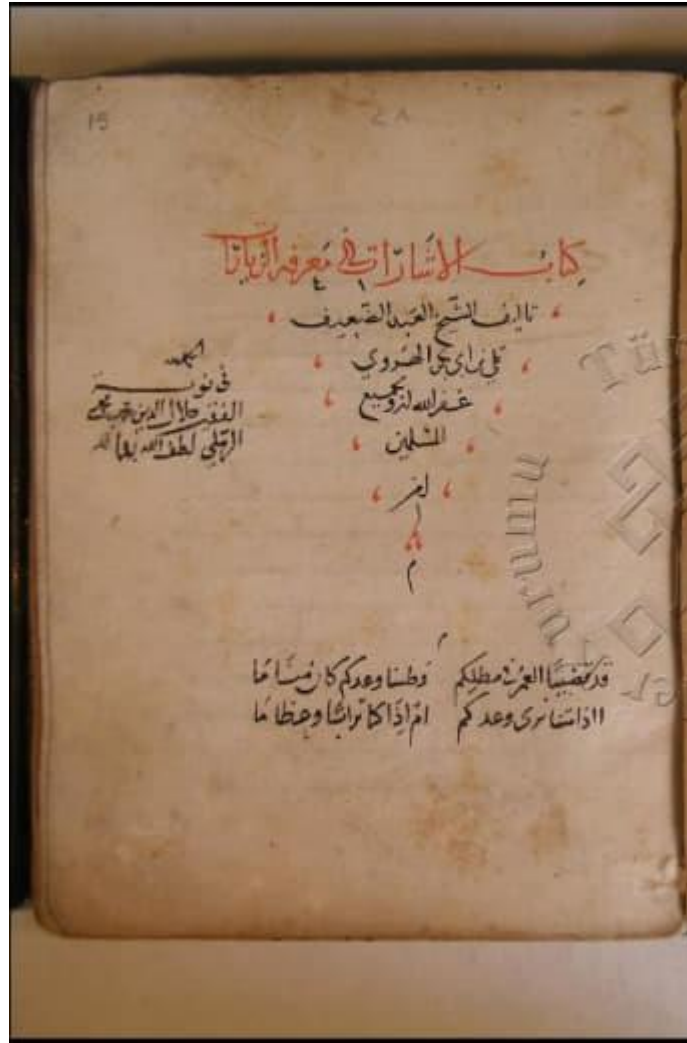 15
٢٨
كتاب الاشارات في معرفة الزيارات
تاليف الشيخ العبد الضعيف
علي بن ابي بكر الهروي
غفر الله له ولجميع
المسلمين
امين
م
الحمد لله
في نوبة
الفقير جلال الدين
الرملي لطف الله به
قد قضينا العمر في مطلكم وظننا وعدكم كان مناما
ااذا متنا نرى وعدكم ام اذا كنا ترابا وعظاما